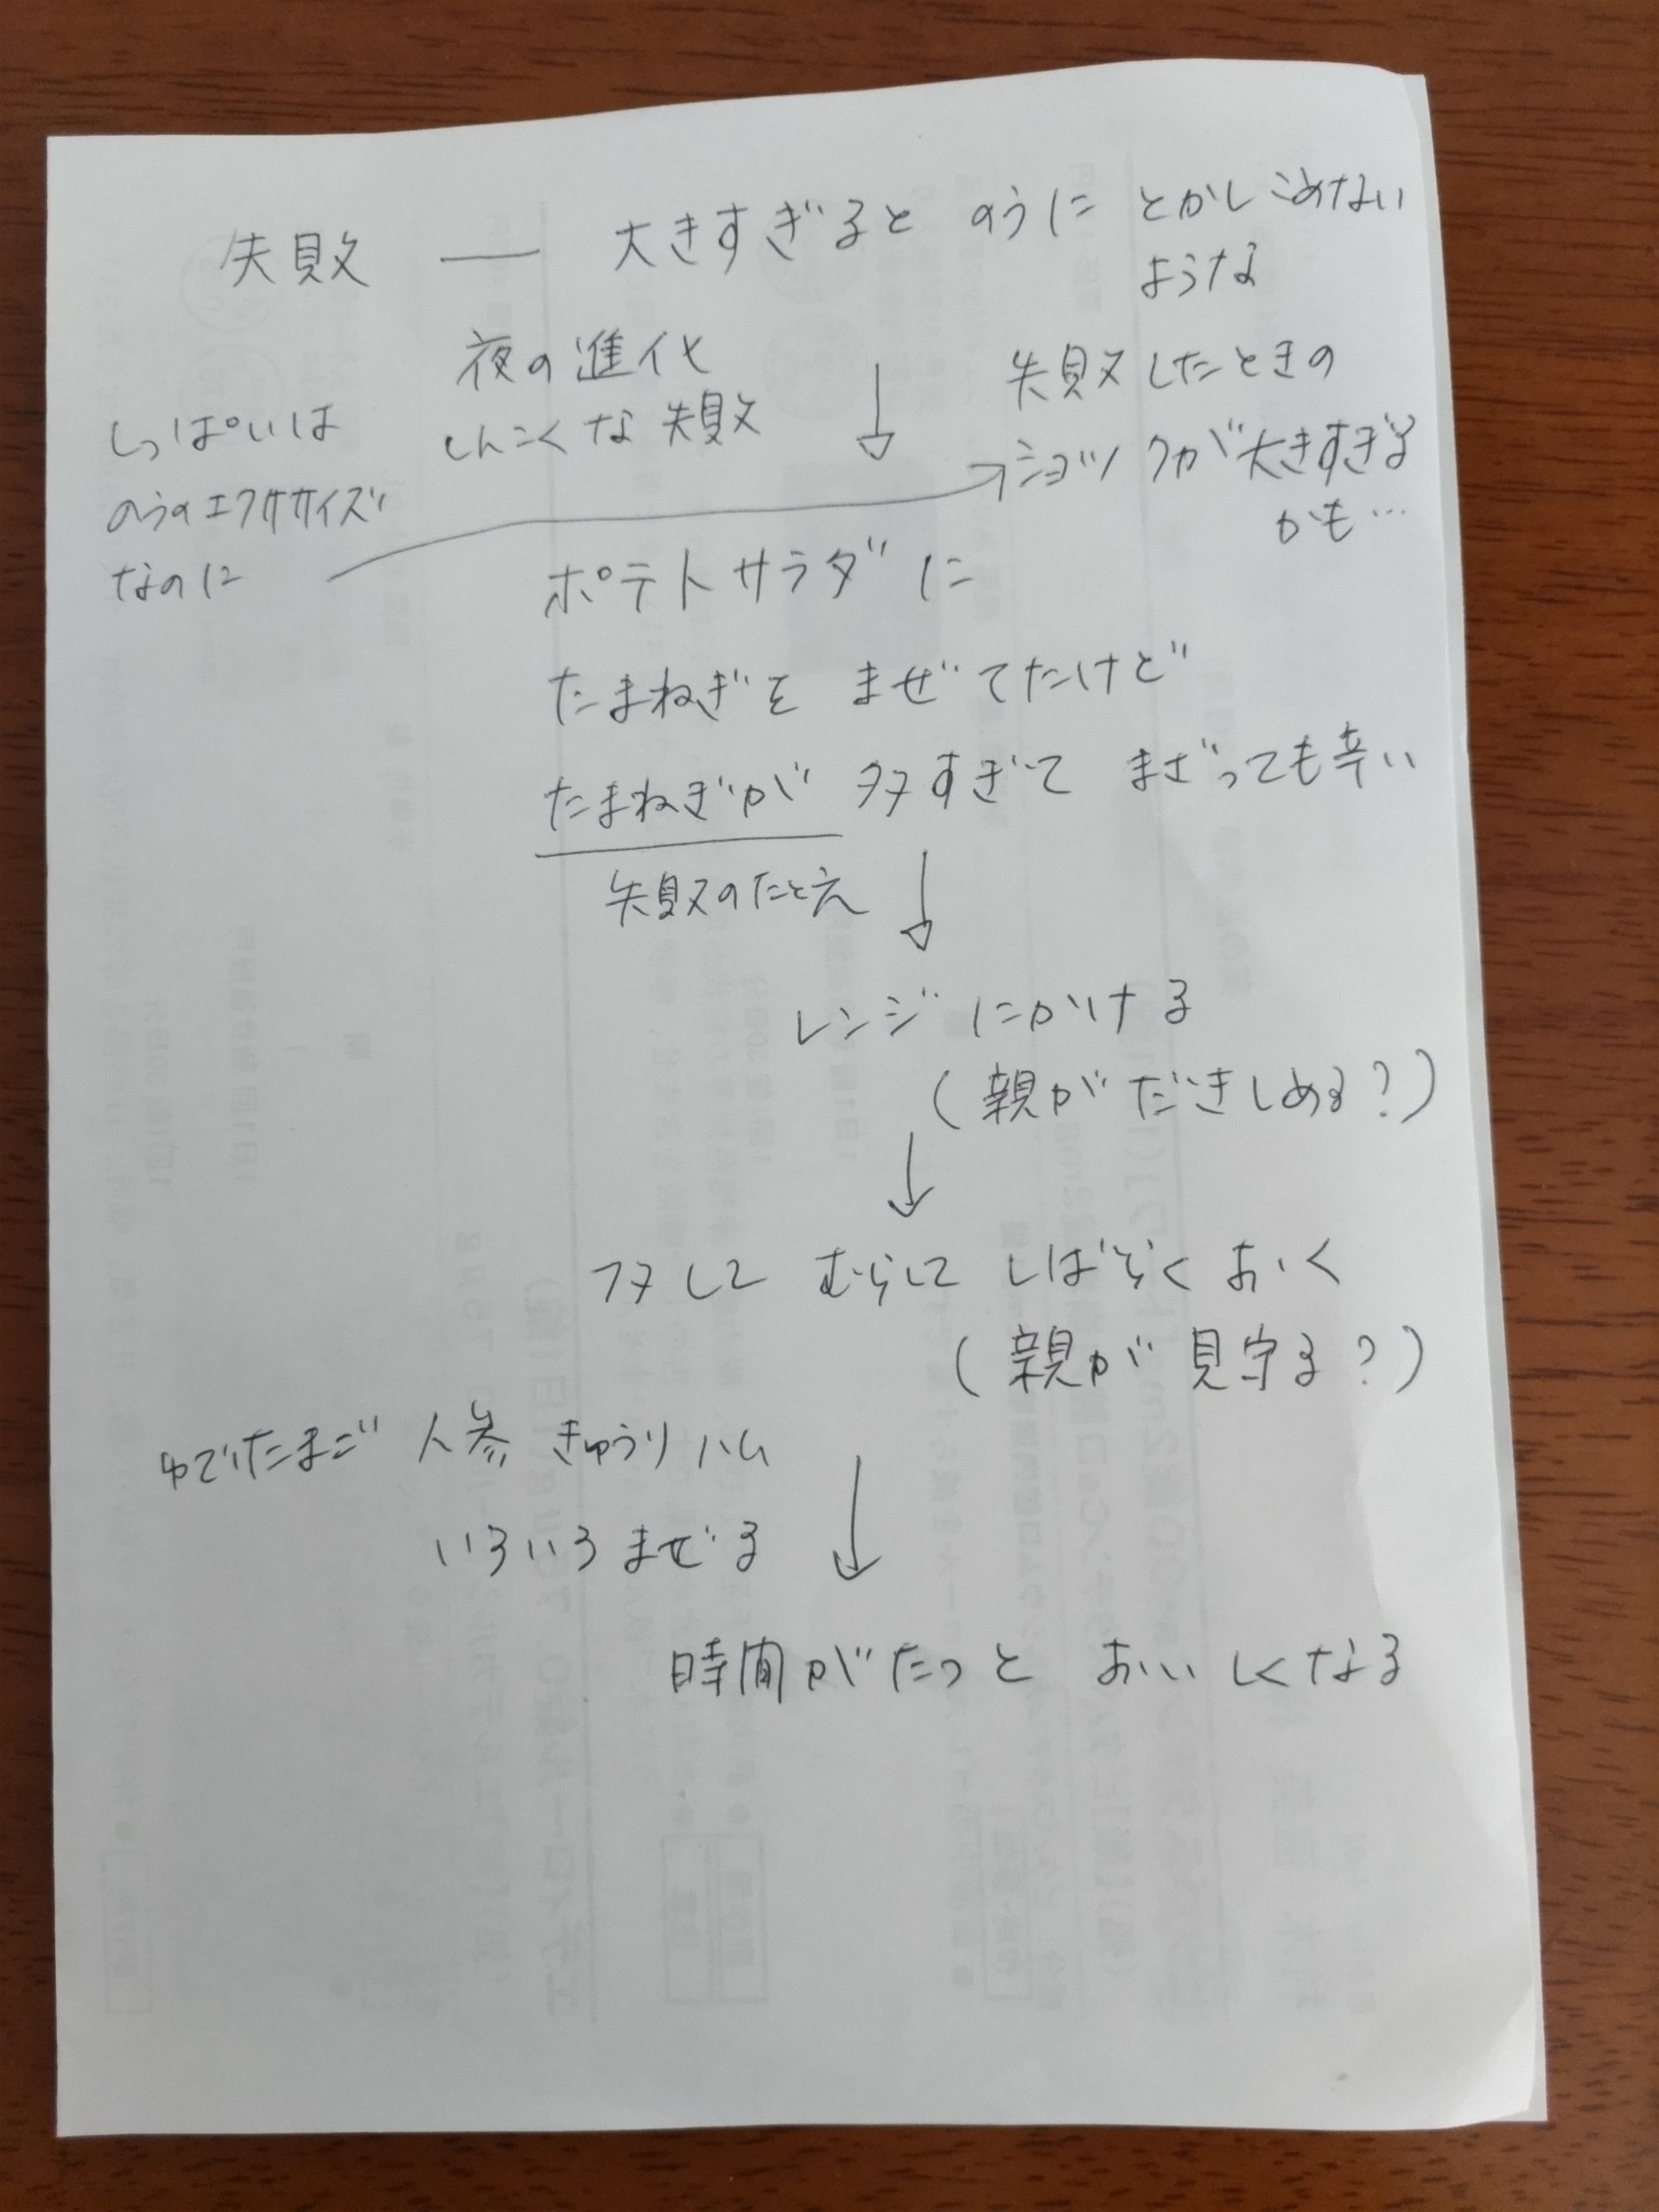 失敗 ― 大きすぎると のうに とかしこめない
ような
夜の進化
しんこくな失敗
失敗したときの
ショックが大きすぎる
かも…
しっぱいは
のうのエクササイズ
なのに
ポテトサラダに
たまねぎを まぜてたけど
たまねぎが 多すぎて まざっても辛い
失敗のたとえ
レンジにかける
(親がだきしめる?)
フタして むらして しばらく おく
(親が見守る?)
ゆでたまご 人参 きゅうり ハム
いろいろまぜる
時間がたつと おいしくなる